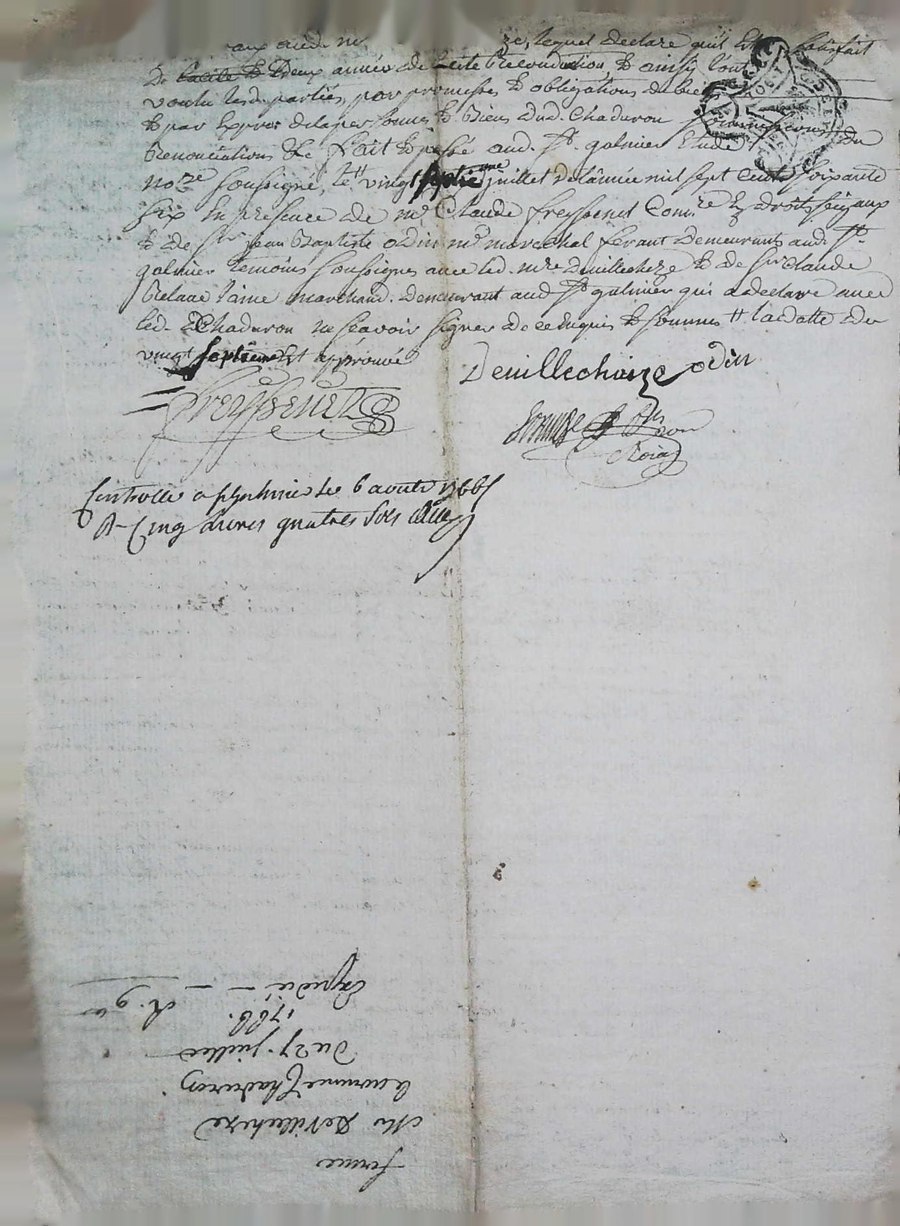 aux aud. me lequel declare qu'il Est satisfait
De deux année de Reconduction & ainsi Lont
voulu lesd. parties, par promesses & obligations de bie
& par Exprès delaper sonnes & Biens dud. Chaduron
Renonciations &c. Fait & passé aud. St. galmier Etude du
Nore. soussigné, Le vingt septieme juillet de l'année mil sept Cents soixante
six En presence de mr. Claude freyssenet Comre. Es droits seigaux
& de sr. jean Baptiste odin me. marechal ferant Demeurants aud. St.
galmier temoins soussignes avec led. mre. Deuillecheze & de sr. Claude
l'ainé marchand. Demeurant aud. St. galmier qui a declaré avec
led. Chaduron ne scavoir signer de ce Enquis & sommés la datte du
vingt septieme Est aprouvé
Freyssenet Deuillecheze odin
Controllé a st galmier le 6 aoust 1766
R. Cinq livres quatres sols
ferme
Mr Devilleheze
le nommé Chaduron
Du 27. juillet
1766.
Expedié